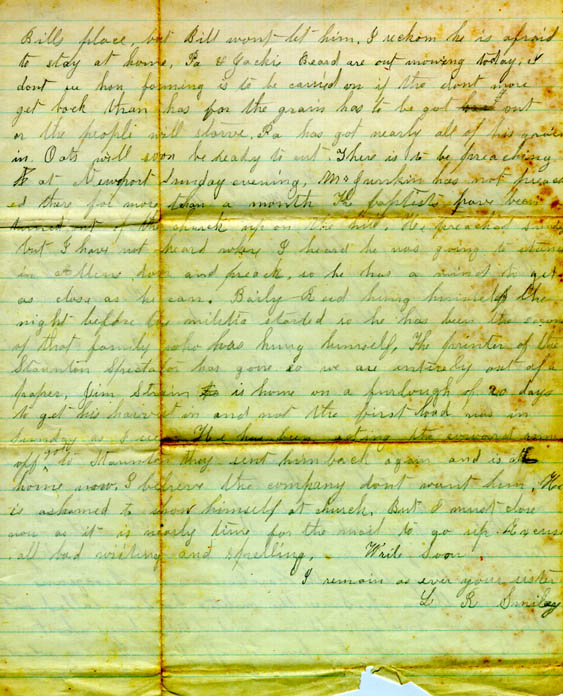 Billy place, but Bill wont let him. I reckon he is afraid
to stay at home. Pa & Jackie Beard are out mowing today. I
dont see how farming is to be carried on if the dont more
get back than has for the grain has to be got out
or the people will starve. Pa has got nearly all of his
in. Oats will soon be ready to cut. There is to be preaching
at Newport Sunday evening, Mr Junkin has not preach
ed there for more than a month The baptists have been
turned out of the church up on the hill. He preached
but I have not heard where I heard he was going to stand
in door and preach, so he has a mind to get
as close as he can. Baily Reid hung himself the
night before the militia started so he has been the
of that family who was hung himself. The printer of the
Staunton Spectator has gone so we are entirely out of a
paper. Jim Strain is home on a furlough of 20 days
to get his harvest in and not the first load was in
Sunday as I He has been acting the coward
off got to Staunton they sent him back again and is at
home now. I believe the company dont want him. He
is ashamed to show himself at church. But I must close
now as it is nearly time for the mail to go up. Excuse
all bad writing and spelling. Write Soon
I remain as ever your sister
L R Smiley